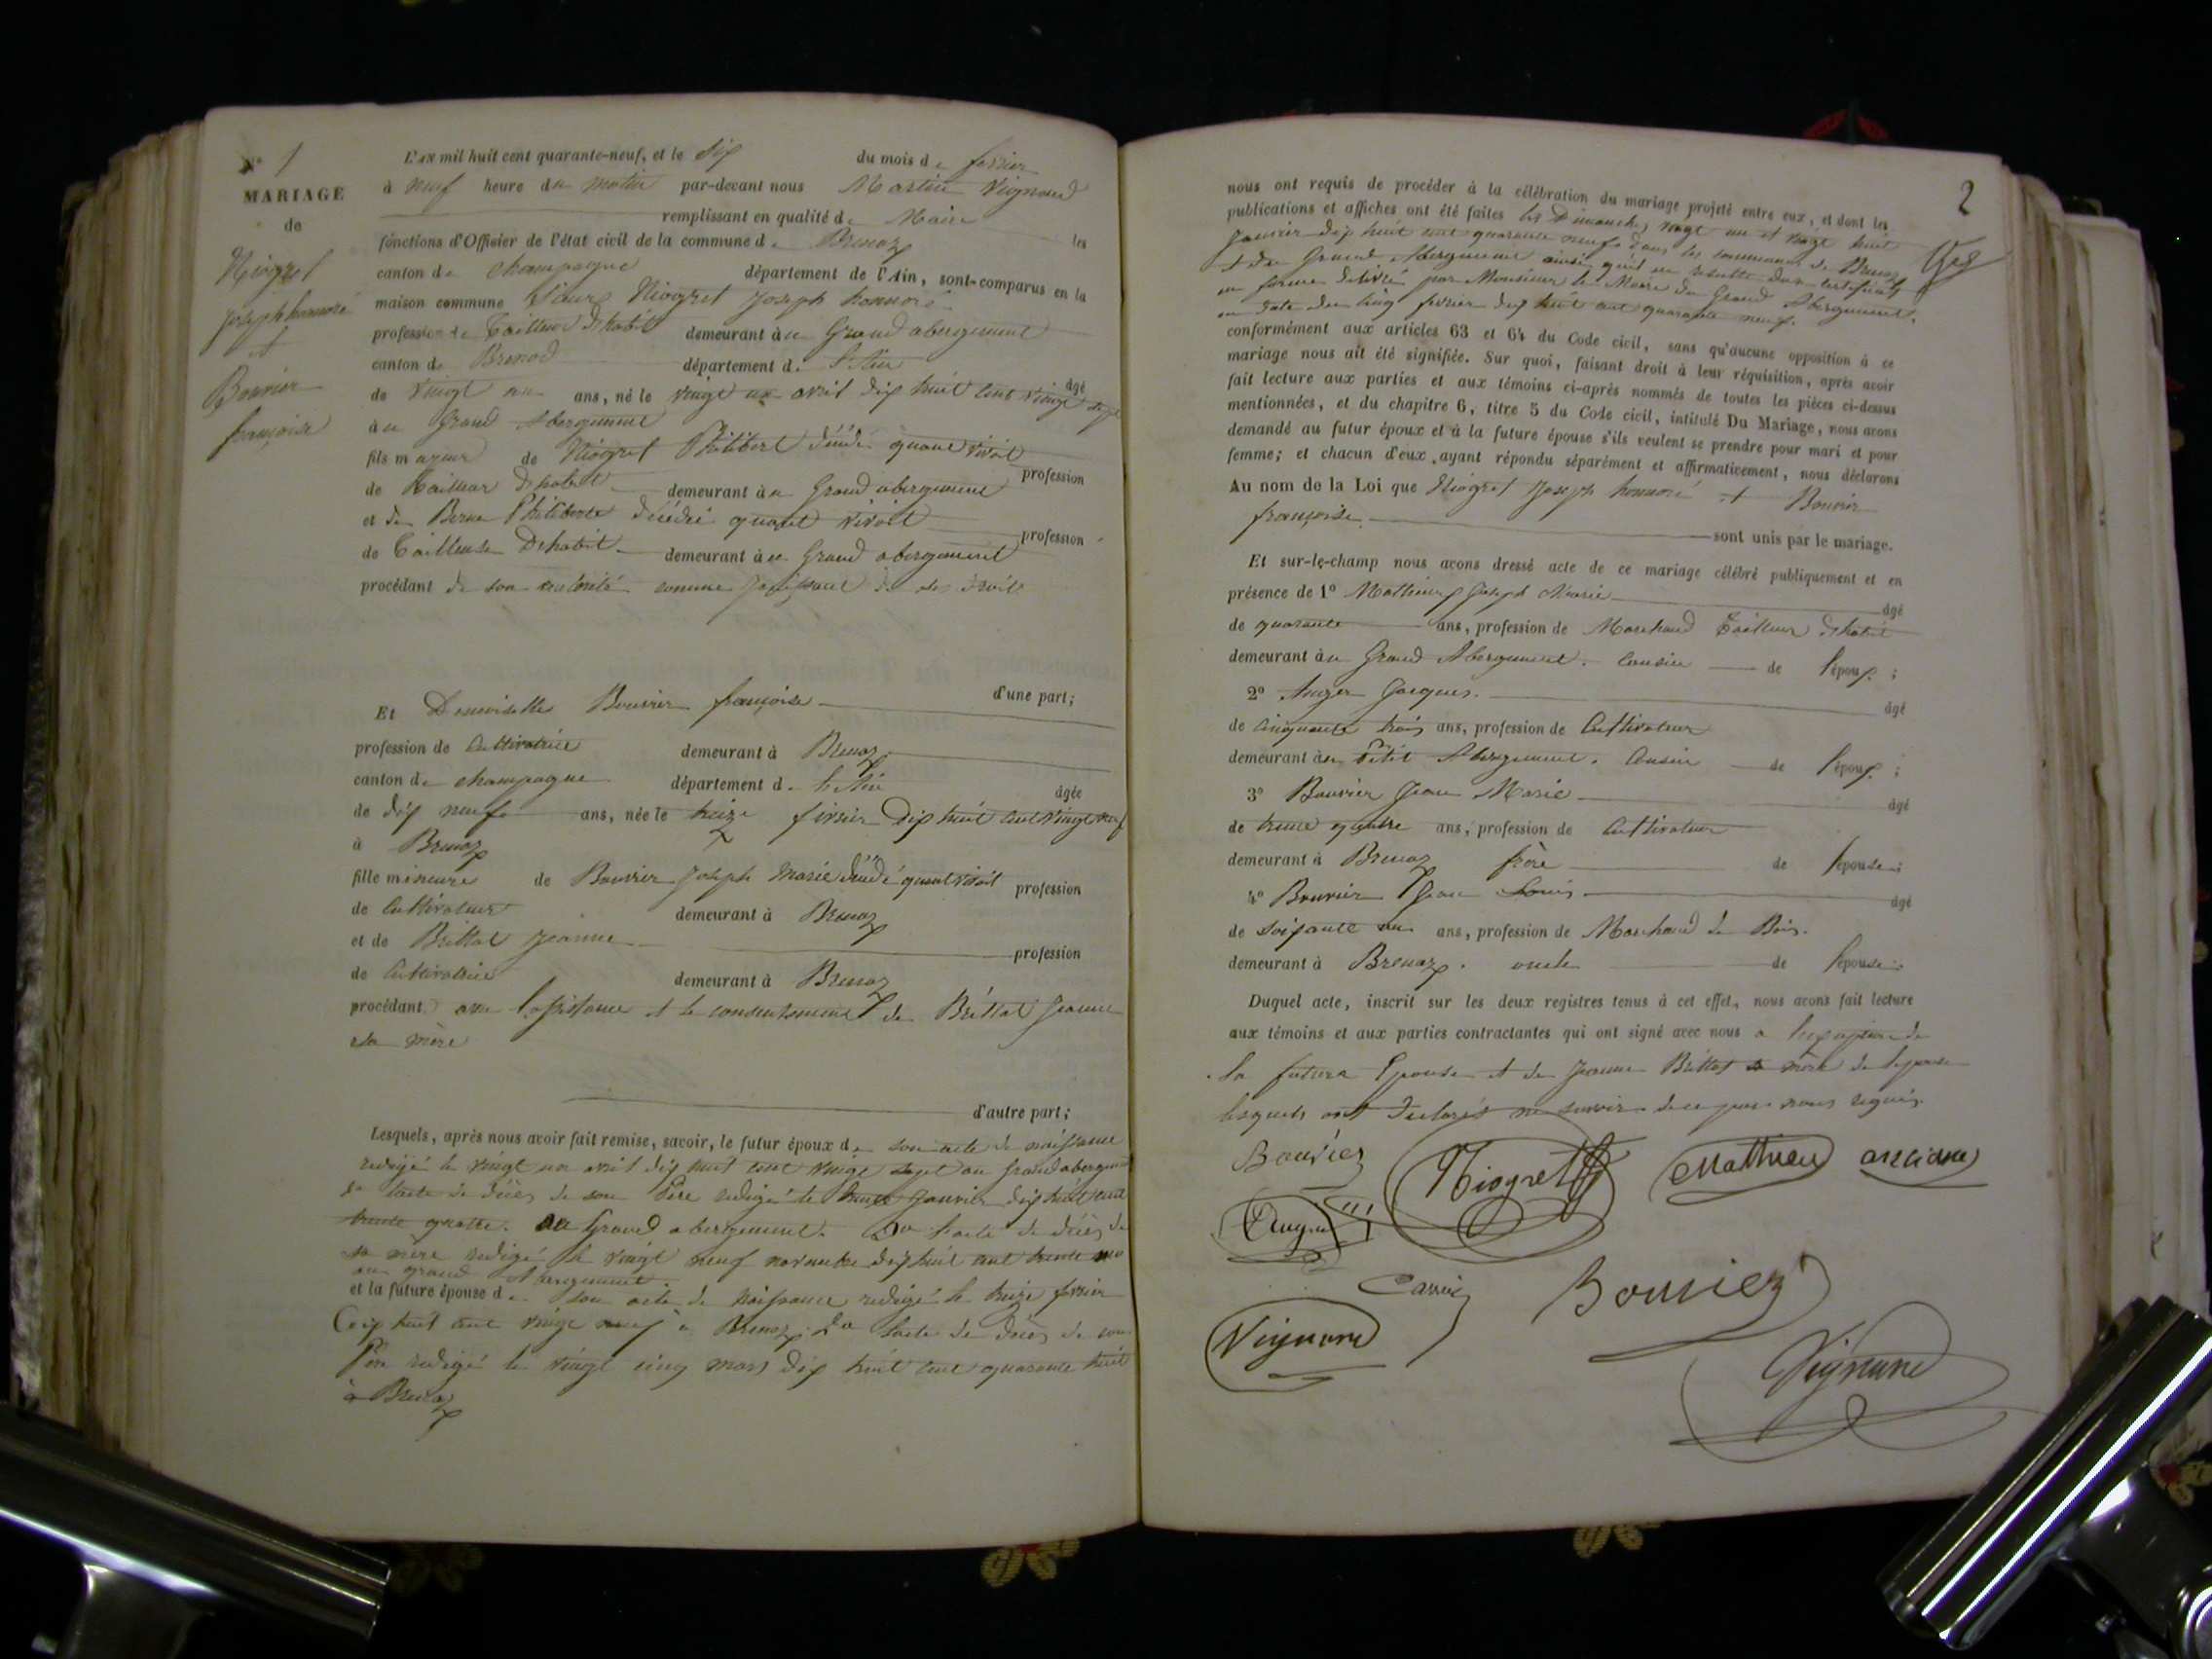 N° 1
MARIAGE
de
Niogret
Joseph honnoré
et
Bouvier
françoise
L'an mil huit cent quarante-neuf, et le six du mois de fevrier
à neuf heure du matin par-devant nous Martin Vignand
remplissant en qualité de Maire les
fonctions d'Officier de l'état civil de la commune de Brenaz
canton de champagne département de l'Ain, sont comparus en la
maison commune Sieur Niogret Joseph honnoré
profession de Tailleur d'habit demeurant au Grand abergement
canton de Brenod département de l'Ain âgé
de vingt un ans, né le vingt un avril dix huit cent vingt sept
au Grand Abergement
fils majeur de Niogret Philibert décédé quand vivait profession
de Tailleur d'habit demeurant au Grand abergement
et de Berne Philiberte décédée quand vivait profession
de Tailleuse d'habit demeurant au Grand abergement
procédant de son autorité comme jouissant de ses droits
d'une part;
Et Demoiselle Bouvier françoise
profession de Cultivatrice demeurant à Brenaz
canton de champagne département de l'Ain âgée
de dix neuf ans, née le treize fevrier dix huit cent vingt neuf
à Brenaz
fille mineure de Bouvier Joseph Marie décédé quand vivait profession
de Cultivateur demeurant à Brenaz
et de Brittat Jeanne profession
de Cultivatrice demeurant à Brenaz
procédant avec l'assistance et le consentement de Brittat Jeanne
sa mère
d'autre part;
Lesquels, après nous avoir fait remise, savoir, le futur époux de son acte de naissance
redigé le vingt un avril dix huit cent vingt sept au Grand abergement
de l'acte de décès de son Père redigé le janvier dix huit cent
trente quatre au Grand abergement. De l'acte de décès de
sa mère redigé le vingt neuf novembre dix huit cent trente
au grand Abergement
et la future épouse de son acte de naissance redigé le treize fevrier
dix huit cent vingt neuf à Brenaz. De l'acte de décès de son
Père redigé le vingt cinq mars dix huit cent quarante huit
à Brenaz
2
nous ont requis de procéder à la célébration du mariage projeté entre eux, et dont les
publications et affiches ont été faites les Dimanches vingt un et vingt huit
Janvier dix huit cent quarante neuf dans les communes de Brenaz
et du Grand Abergement ainsi qu'il en resulte d'un certificat
en forme delivré par Monsieur le Maire du Grand Abergement
en date du cinq fevrier dix huit cent quarante neuf.
conformément aux articles 63 et 64 du Code civil, sans qu'aucune opposition à ce
mariage nous ait été signifiée. Sur quoi, faisant droit à leur réquisition, après avoir
fait lecture aux parties et aux témoins ci-après nommés de toutes les pièces ci-dessus
mentionnées, et du chapitre 6, titre 5 du Code civil, intitulé Du Mariage, nous avons
demandé au futur époux et à la future épouse s'ils veulent se prendre pour mari et pour
femme; et chacun d'eux ayant répondu séparément et affirmativement, nous déclarons
Au nom de la Loi que Niogret Joseph honnoré et Bouvier
françoise
sont unis par le mariage.
Et sur-le-champ nous avons dressé acte de ce mariage célébré publiquement et en
présence de 1° Mathieux Joseph Marie âgé
de quarante ans, profession de Marchand Tailleur d'habit
demeurant au Grand Abergement. Cousin de l'époux;
2° Auger Jacques. âgé
de cinquante trois ans, profession de Cultivateur
demeurant au Petit Abergement. Cousin de l'époux;
3° Bouvier Jean Marie âgé
de trente quatre ans, profession de Cultivateur
demeurant à Brenaz frère de l'épouse;
4° Bouvier Jean Louis âgé
de soixante un ans, profession de Marchand de Bois.
demeurant à Brenaz. oncle de l'épouse.
Duquel acte, inscrit sur les deux registres tenus à cet effet, nous avons fait lecture
aux témoins et aux parties contractantes qui ont signé avec nous a l'exception de
la future Epouse et de Jeanne Brittat mère de l'epouse
lesquels ont declarés ne savoir de ce par nous requis.
Bouvier
Niogret
Mathieu
Bouvier
Vignand
Vignand